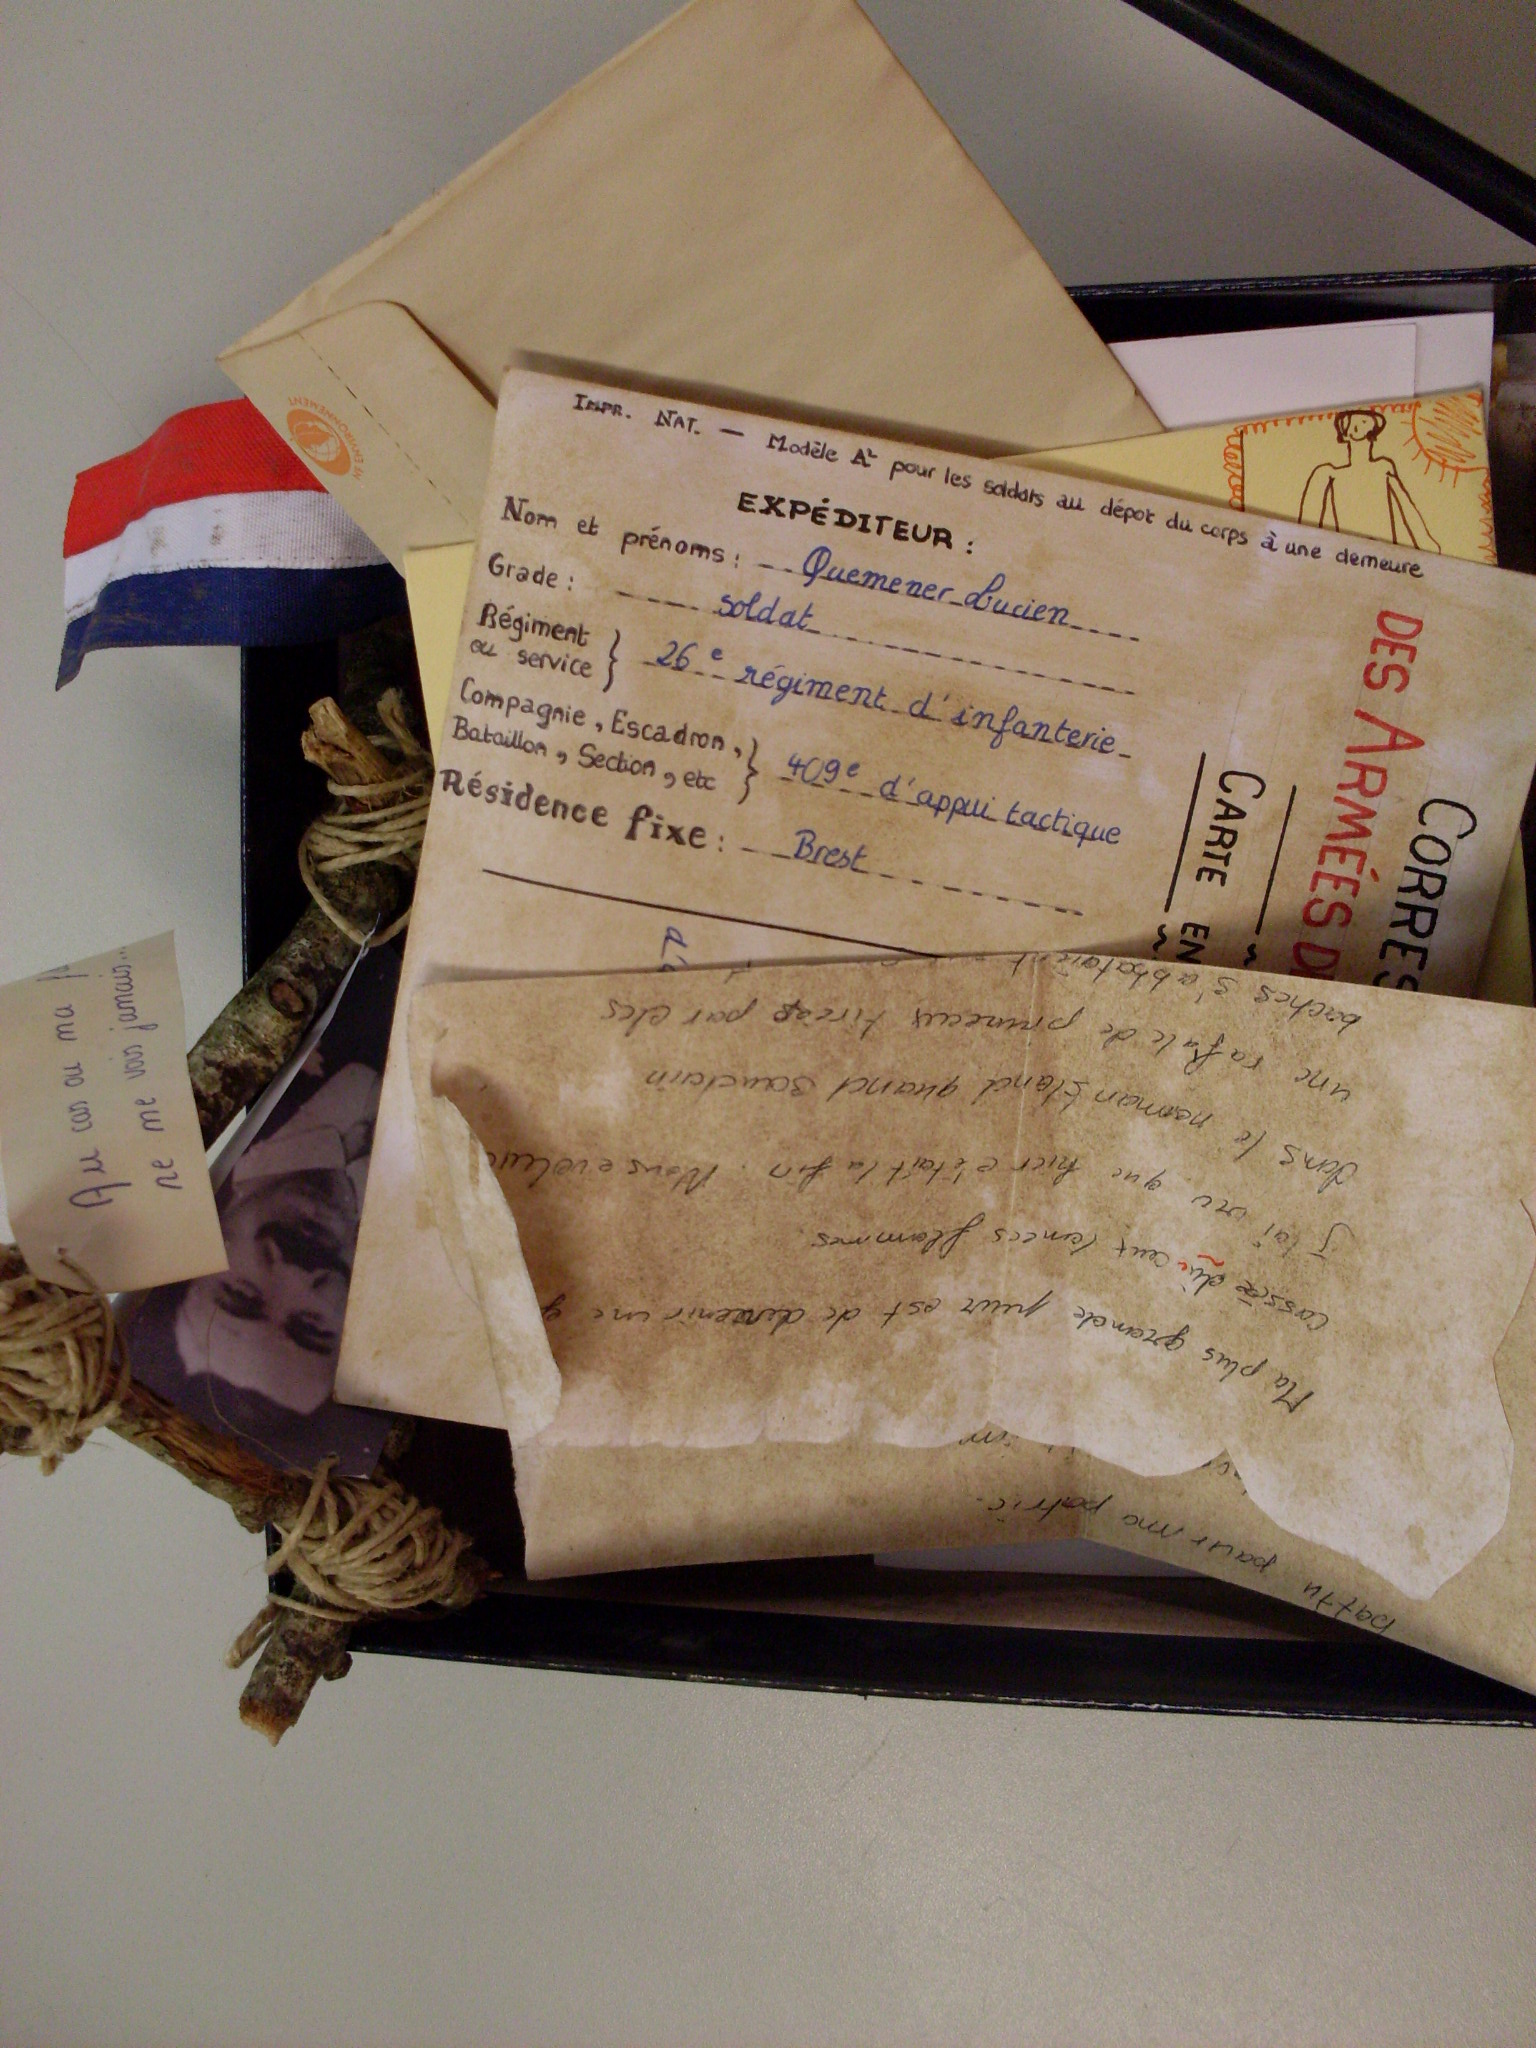 IMPR. NAT. — Modèle A² pour les soldats au dépôt du corps à une demeure
EXPÉDITEUR :
Nom et prénoms : Quemener Lucien
Grade : soldat
Régiment
ou service } 26e régiment d'infanterie
Compagnie, Escadron,
Bataillon, Section, etc } 409e d'appui tactique
Résidence fixe : Brest
CORRES
DES ARMÉES D
CARTE EN
L'ENVIRONNEMENT
Au cas ou ma
ne me vois jamais...
Ma plus grande peur est de devenir une g
cassée aux lances flammes.
J'ai vu que hier c'était la fin. Nous
dans le noman'sland quand soudain
une rafale de pruneaux par des
boches s'abbataient
battu pour ma patrie.